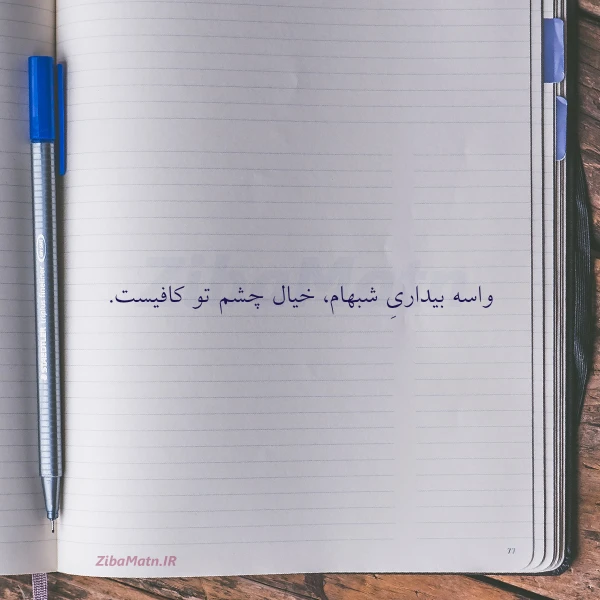 واسه بیداریِ شبهام، خیال چشم تو کافیست.
ZibaMatn.IR